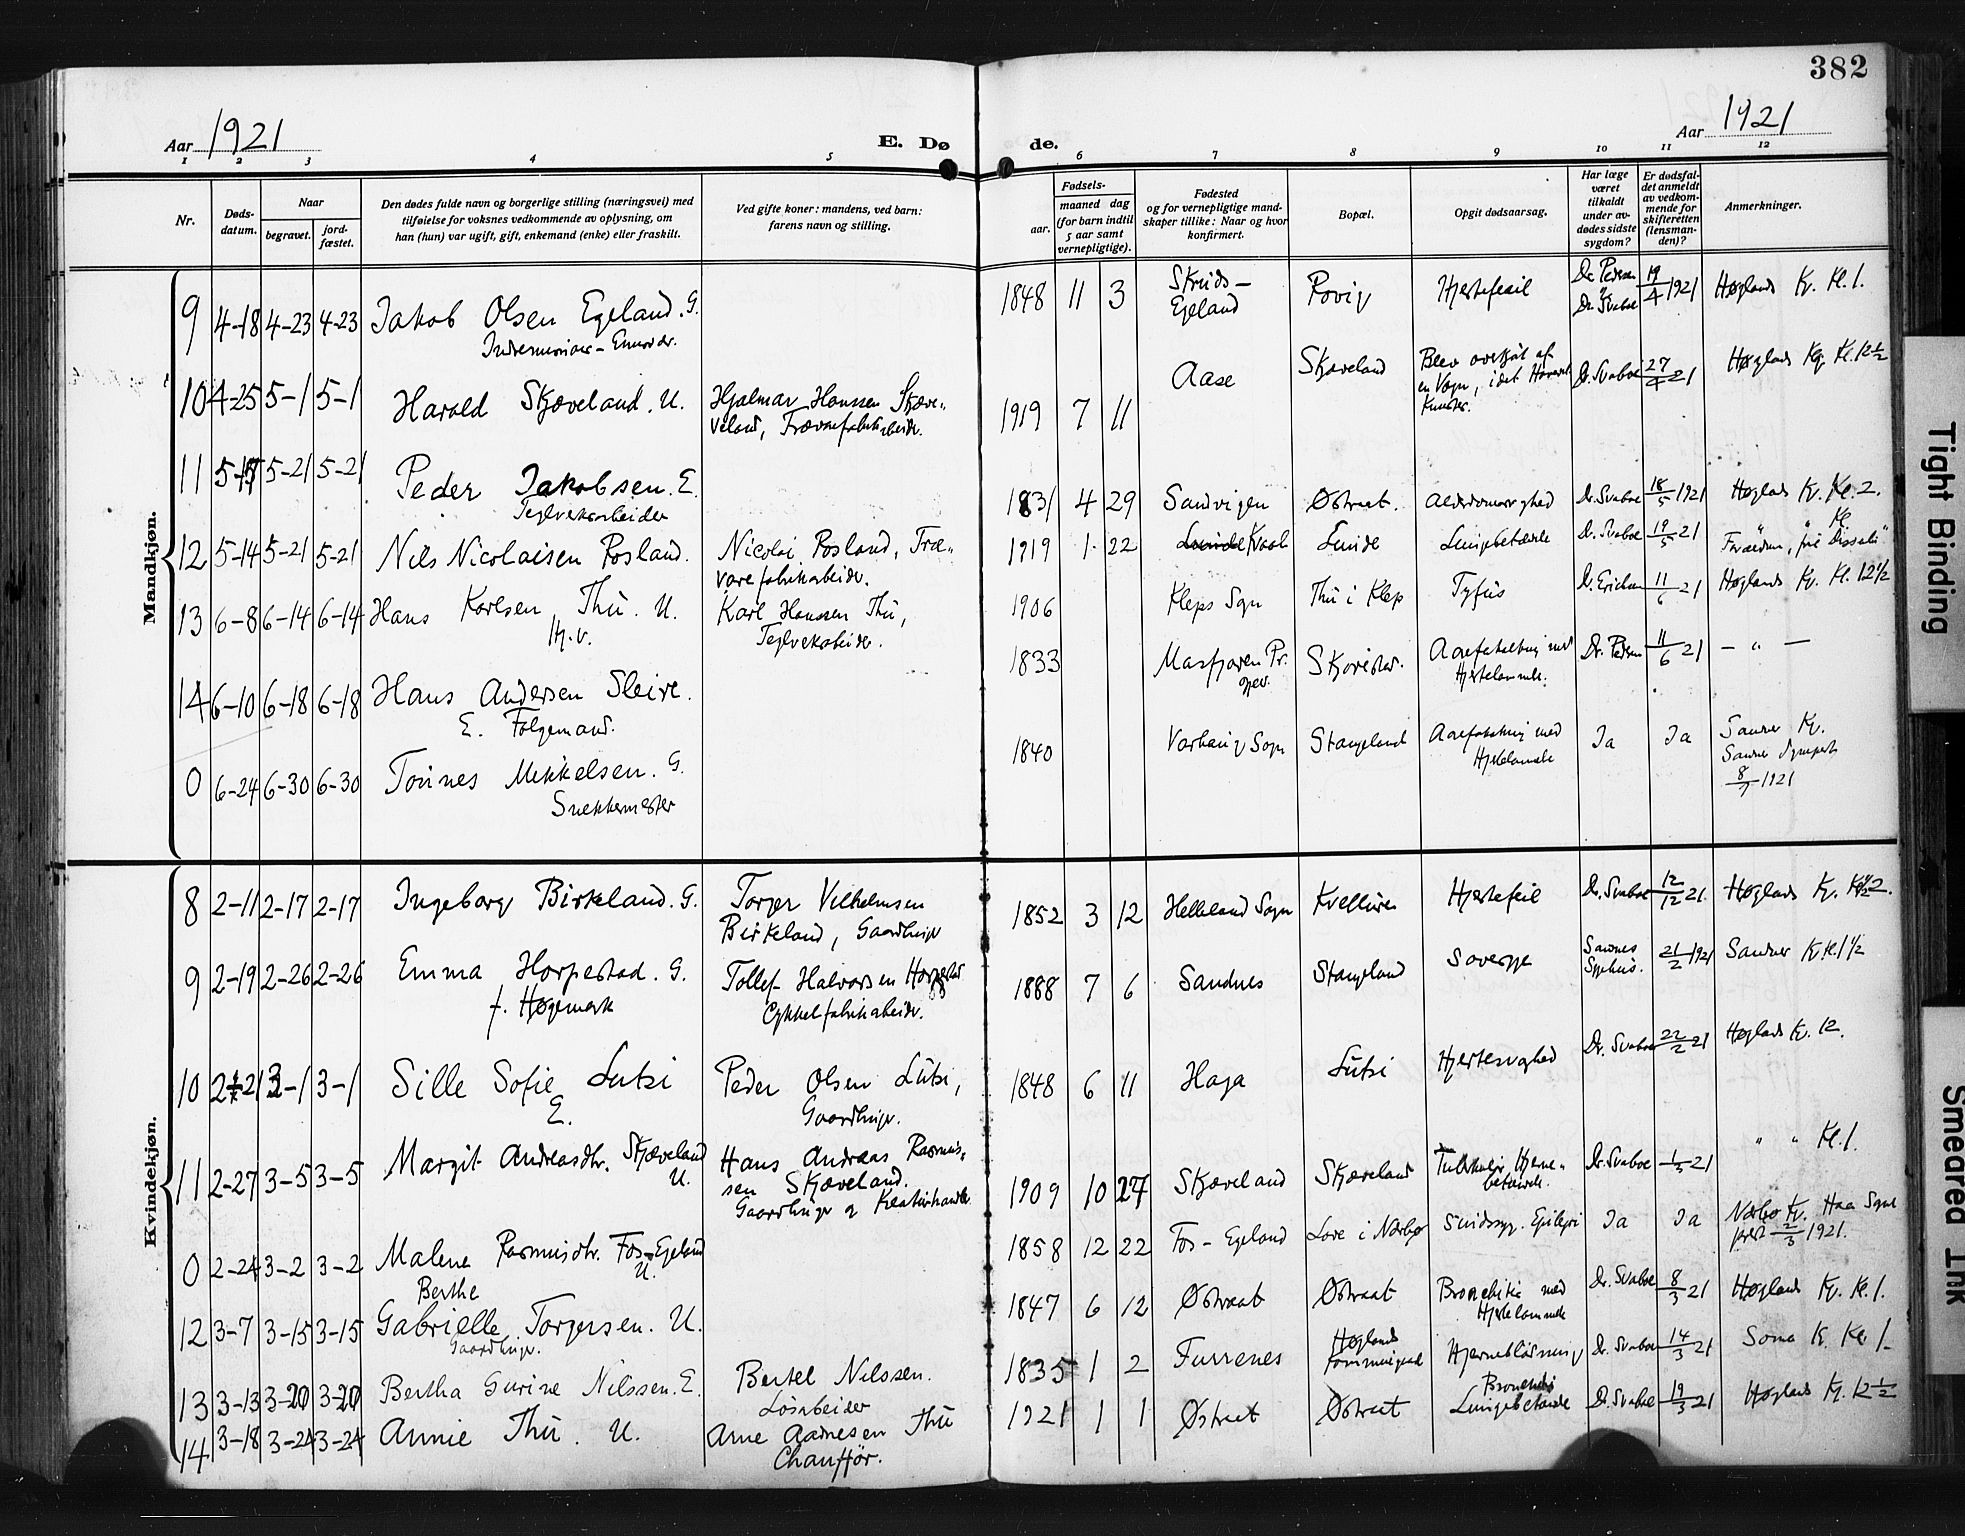 382
Aar 1921
E. Dø de.
Aar 1921
1 2 3 4 5 6 7 8 9 10 11 12
Nr.
Døds-
datum.
Naar
begravet.
jord-
fæstet.
Den dødes fulde navn og borgerlige stilling (næringsvei) med
tilføielse for voksnes vedkommende av oplysning, om
han (hun) var ugift, gift, enkemand (enke) eller fraskilt.
Ved gifte koner: mandens, ved barn:
farens navn og stilling.
Fødsels-
aar.
maaned dag
(for barn indtil
5 aar samt
vernepligtige).
Fødested
og for vernepligtige mand-
skaper tillike: Naar og hvor
konfirmert.
Bopæl.
Opgit dødsaarsag.
Har læge
været
tilkaldt
under av-
dødes sidste
sygdom?
Er dødsfal-
det anmeldt
av vedkom-
mende for
skifteretten
(lensman-
den)?
Anmerkninger.
Mandkjøn.
9 4-18 4-23 4-23 Jakob Olsen Egeland. G.
1848 11 3 Skeids-
Egeland Rovig Hjertefeil Dr. Pedersen
Dr. Svaboe 19/4 1921 Høglands K. Kl. 1.
10 4-25 5-1 5-1 Harald Skjæveland. U. Hjalmar Hanssen Skjæve-
veland, Trævarefabrikarbeider.
1919 7 11 Aase Skjæveland Blev overkjørt af
en Vogn, idet Hovedet
knustes. Dr. Svaboe 27/4 21 Høglands Kg. Kl. 12 1/2
11 5-15 5-21 5-21 Peder Jakobsen. E.
Teglverksarbeider
1831 4 29 Sandvigen Østraat. Alderdomssvaghed Dr. Svaboe 18/5 1921 Høglands K. Kl. 2.
12 5-14 5-21 5-21 Nils Nicolaisen Rosland. Nicolai Rosland, Træ-
varefabrikarbeider.
1919 1 22 Lunde Lunde Lungebetændelse Dr. Svaboe 19/5 21
13 6-8 6-14 6-14 Hans Karlsen Thu. U.
Hj. v. Karl Hanssen Thu,
Teglverksarbeider.
1906 Kleps Sogn Thu i Klep Tyfus Dr. Erichsen 11/6 21 Høglands K. Kl. 12 1/2
14 6-10 6-18 6-18 Hans Andersen Sleire.
E. Følgemand.
1833 Masfjoren Pr.
gjeld. Aareforkalkning med
Hjertelammelse. Dr. Pedersen 11/6 21 - " -
0 6-24 6-30 6-30 Tønnes Mikkelsen. G.
Snekkermester
1840 Varhaug Sogn Stangeland Aareforkalkning med
Hjertelammelse Ja Ja Sandnes K.
Sandnes Sogneprest
8/7 1921
Kvindekjøn.
8 2-11 2-17 2-17 Ingeborg Birkeland. G. Torger Vilhelmsen
Birkeland, Gaardbruger
1852 3 12 Helleland Sogn Hjertefeil Dr. Svaboe 12/12 21. Høglands K.
9 2-19 2-26 2-26 Emma Horpestad. G.
f. Høgemark Tollef Halvorsen Horpestad
Cykkelfabrikarbeider.
1888 7 6 Sandnes Stangeland Sandnes
Sygehus. 21/2 1921 Sandnes K. Kl. 1 1/2
10 2-21 3-1 3-1 Sille Sofie Lutsi
E. Peder Olsen Lutsi,
Gaardbruger.
1848 6 11 Haga Lutsi Hjertesvaghed Dr. Svaboe 22/2 21 Høglands K. 12.
11 2-27 3-5 3-5 Margit Andreasdtr. Skjæveland
U. Hans Andreas Rasmus-
sen Skjæveland.
Gaardbruger og Kreaturhandler
1909 10 27 Skjæveland Skjæveland Tuberkuløs Hjerne-
betændelse. Dr. Svaboe 1/3 21 " " Kl. 1.
0 2-24 3-2 3-2 Malene Rasmusdtr. Fos-Egeland
U.
1858 12 22 Fos-Egeland Lode i Nærbø Sindssyg. Epilepsi Ja Ja Nærbø K. Haa Sogne
prest 2/3 1921.
12 3-7 3-15 3-15 Berthe
Gabrielle Torgersen. U.
Gaardbruger.
1847 6 12 Østraat Østraat Bronchitis med
Hjertelammelse Dr. Svaboe 8/3 21 Høglands K. Kl. 1.
13 3-13 3-20 3-20 Bertha Gurine Nilssen. E. Bertel Nilssen.
Løsarbeider
1835 1 2 Furrenes Høglands
Hjerneblødning Dr. Svaboe 14/3 21 Soma K. Kl. 1.
14 3-18 3-24 3-24 Annie Thu. U. Arne Aadnesen Thu
Chauffør.
1921 1 1 Østraat Østraat Bronchitis
Lungebetændelse Dr. Svaboe 19/3 21 Høglands K. 12 1/2
Tight Binding
Smeared Ink